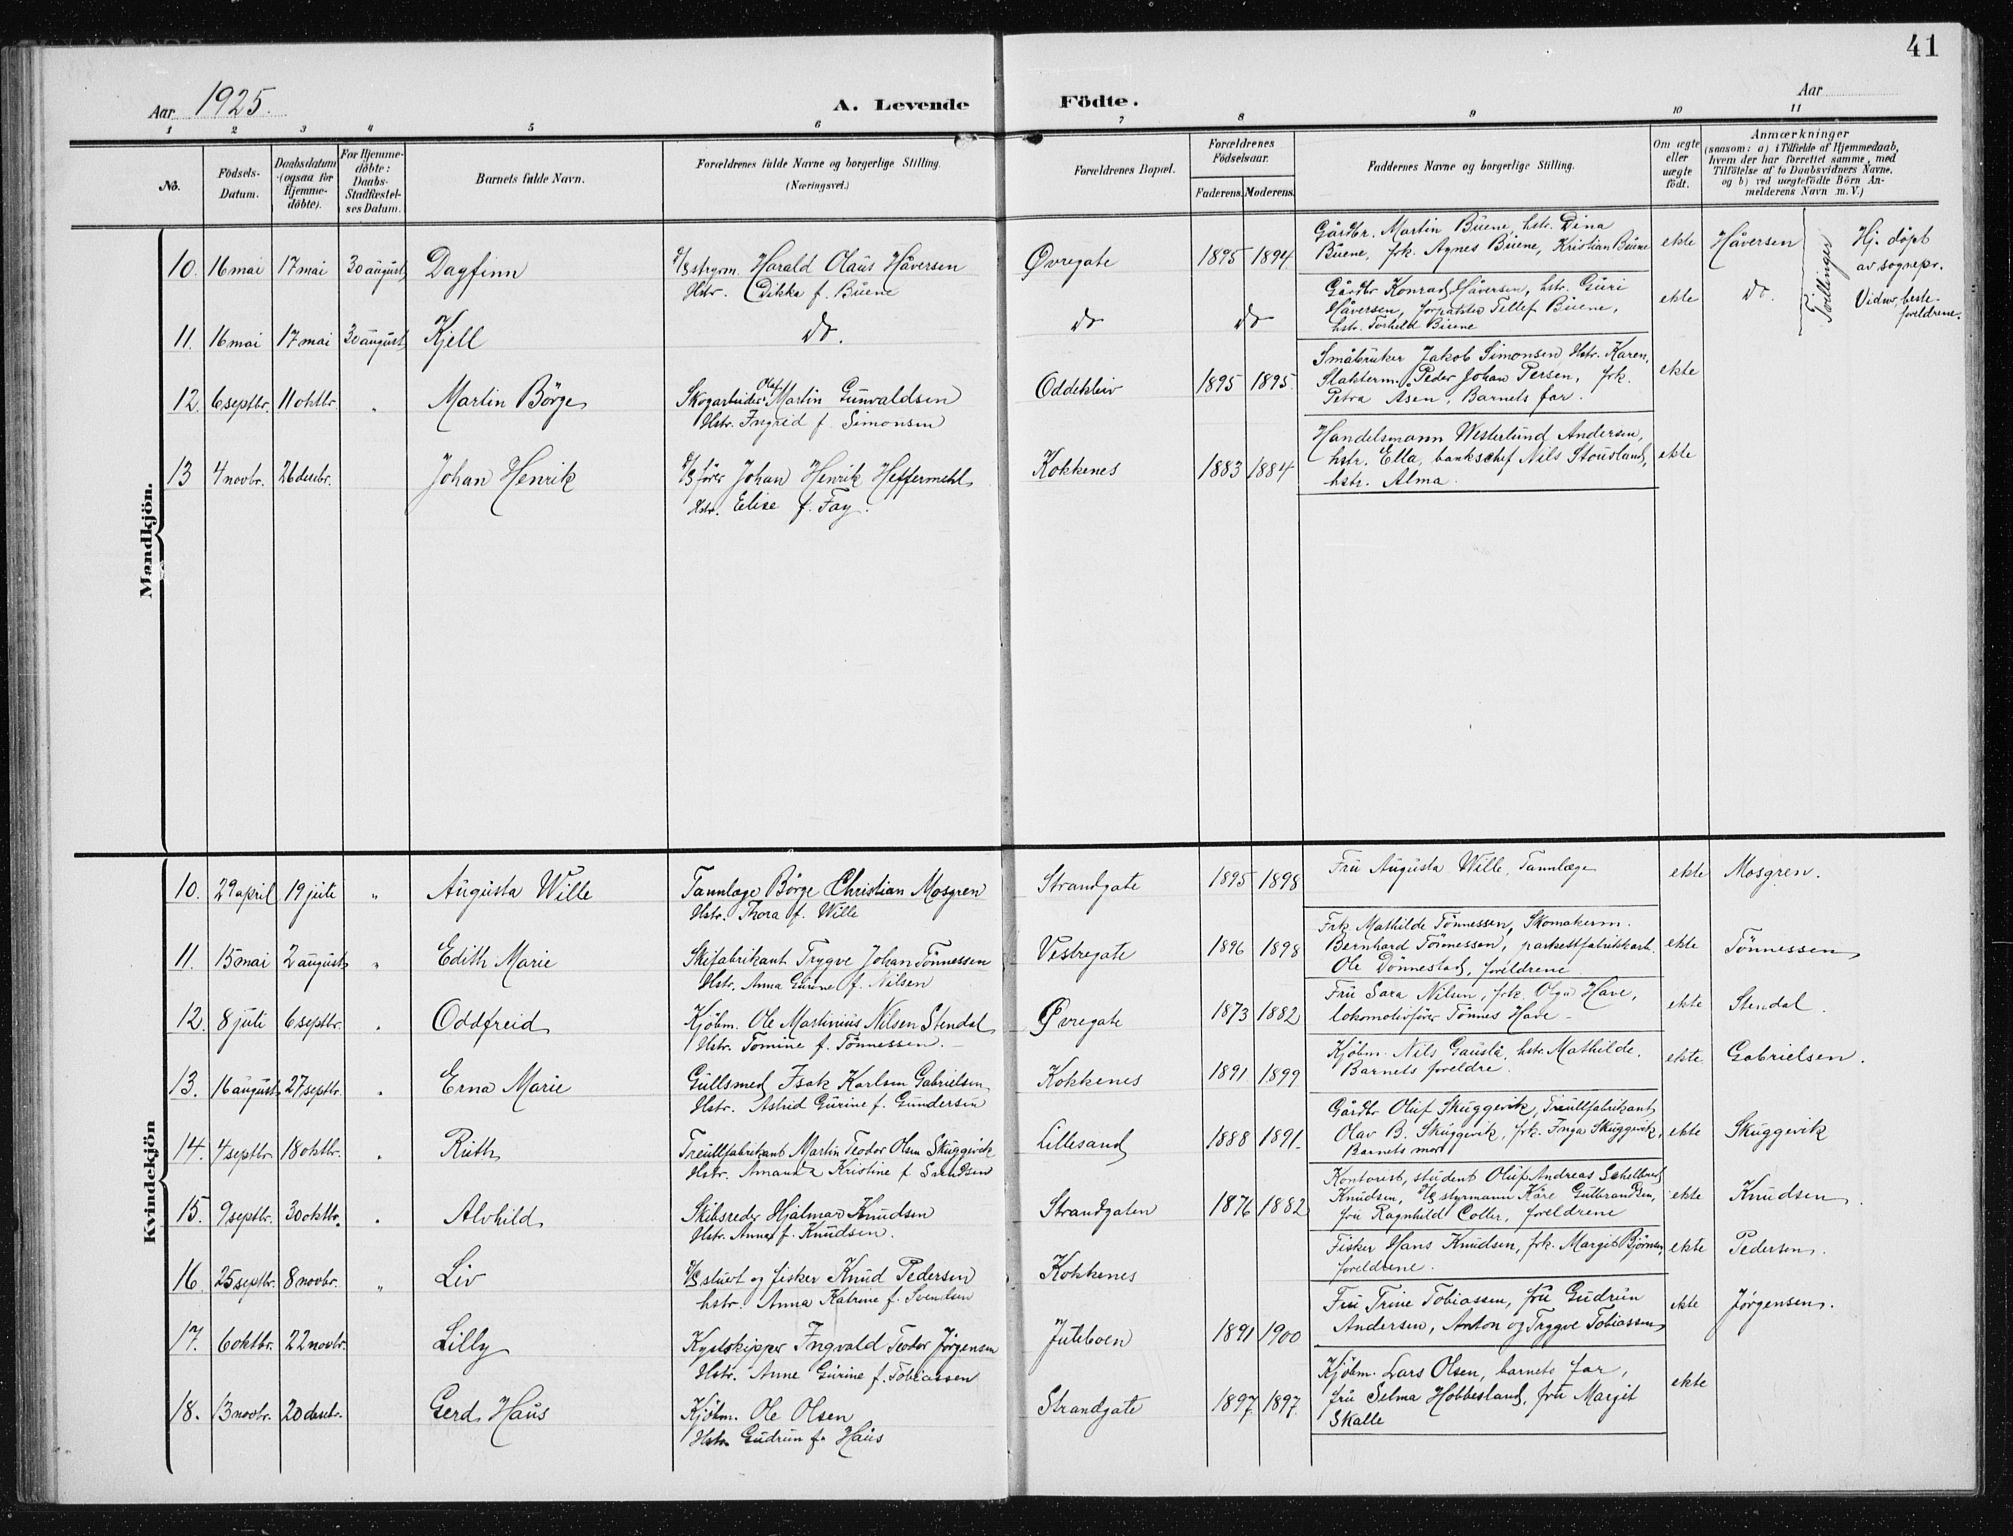 41
Aar 1925.
A. Levende Födte.
Aar
1 2 3 4 5 6 7 8 9 10 11
No.
Födsels-Datum.
Daabsdatum (ogsaa for Hjemme-döbte).
For Hjemme-döbte: Daabs-Stadfæstel-ses Datum.
Barnets fulde Navn.
Forældrenes fulde Navne og borgerlige Stilling. (Næringsvei.)
Forældrenes Bopæl.
Forældrenes Födselsaar.
Faderens. Moderens.
Faddernes Navne og borgerlige Stilling.
Om ægte eller uægte födt.
Anmærkninger
(saasom: a) i Tilfælde af Hjemmedaab, hvem der har forrettet samme, med Tilföielse af to Daabsvidners Navne, og b) ved uægtefödte Börn Anmelderens Navn m. V.)
Mandkjön.
10. 16 mai 17 mai 30 august Dagfinn
D/S strym. Harald Olaus Håversen
Hstr. Dikka f. Buene
Øvregate 1895 1894
Gårdbr. Martin Buene, hstr. Dina
Buene, frk. Agnes Buene, Kristian Buene
ekte Håversen
Tvillinger
Hj. döpt
av sognepr.
Vidner, beste-
foreldrene.
11. 16 mai 17 mai 30 august Kjell
do.
do do
Gårdbr Konrad Håversen, hstr. Guri
Håversen, Tellef Buene,
hstr. Torhilde Buene
ekte do.
12. 6 septbr. 11 oktbr. " Martin Börge
Skogarbeider Olaf Martin Gunvaldsen
Hstr. Ingrid f. Simonsen
Oddekleiv 1895 1895.
Småbruker Jakob Simonsen Hstr. Karen,
Slakterm. Peder Johan Persen, frk.
Petra Åsen, Barnets far.
ekte
13 4 novbr. 26 desbr. Johan Henrik
D/S förer Johan Henrik Heffermehl
Hstr. Elise f. Fay.
Kokkenes 1883 1884
Handelsmann Westerlund Andersen,
hstr. Ella, bankschef Nils Stousland,
hstr. Alma.
ekte
Kvindekjön
10. 29 april 19 juli " Augusta Wille
Tannlæge Börge Christian Mosgren
Hstr. Thora f. Wille
Strandgate 1895 1898
Fru Augusta Wille, Tannlæge
ekte Mosgren.
11. 15 mai 2 august " Edith Marie
Skifabrikant Trygve Johan Tönnessen
Hstr. Anna Gurine f. Nilsen
Vestregate 1896 1898
Frk Mathilde Tönnessen, Skomakerm.
Bernhard Tönnessen, parkettfabrikkarb.
Ole Dönnestad, foreldrene
ekte Tönnessen
12. 8 juli 6 septbr. " Oddfreid
Kjöbm. Ole Martinius Nilsen Stendal
Hstr. Tomine f. Tönnessen.
Øvregate 1873 1882
Fru Sara Nilsen, frk. Olga Have,
lokomotivförer Tönnes Have
ekte Stendal.
13. 16 august 27 septbr. " Erna Marie
Gullsmed Isak Karlsen Gabrielsen
Hstr. Astrid Gurine f. Gundersen
Kokkenes 1891 1899
Kjöbm. Nils Gauslå, hstr. Mathilde.
Barnets foreldre.
ekte Gabrielsen.
14. 4 septbr 18 oktbr. " Ruth
Treullfabrikant Martin Teodor Olsen Skuggevik
Hstr. Amanda Kristine f Sandsen
Lillesand 1888 1891.
Gårdbr Oluf Skuggevik, Treullfabrikant
Olav B. Skuggevik, frk. Inga Skuggevik,
Barnets mor
ekte Skuggevik
15. 9 septbr. 30 oktbr. " Alvhild
Skibsreder Hjalmar Knudsen
Hstr. Anna f. Knudsen.
Strandgaten 1876 1882
Kontorist, student Oluf Andreas
Knudsen, D/S styrmann Kåre Gulbrandsen,
fru Ragnhild Coller, foreldrene
ekte Knudsen.
16. 25 septbr. 8 novbr. " Liv
D/S stuert og fisker Knud Pedersen
hstr. Anna Katrine f. Svendsen
Kokkenes
Fisker Hans Knudsen, frk. Margit Björnsen,
foreldrene.
ekte Pedersen.
17. 6 oktbr. 22 novbr. Lilly
Kystskipper Ingvald Teodor Jørgensen
Hstr. Anne Gurine f. Tobiassen
Juteboen 1891 1900
Fru Trine Tobiassen, fru Gudrun
Andersen, Anton og Trygve Tobiassen
ekte Jørgensen.
18. 13 novbr. 20 desbr. Gerd Haus
Kjöbm. Ole Olsen
Hstr Gudrun f. Haus
Strandgate 1897 1897.
Kjöbm. Lars Olsen, barnets far,
fru Selma Hobbesland, fru Margit
Skalle
ekte